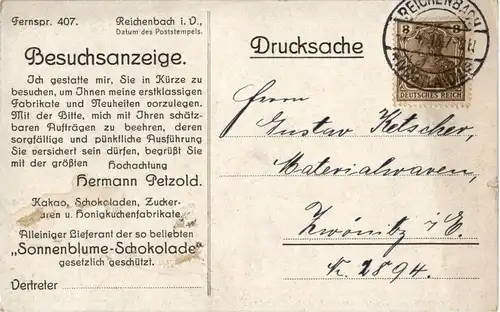 Fernspr. 407. Reichenbach i. V.,
Datum des Poststempels.
Besuchsanzeige.
Ich gestatte mir, Sie in Kürze zu
besuchen, um Ihnen meine erstklassigen
Fabrikate und Neuheiten vorzulegen.
Mit der Bitte, mich mit Ihren schätz-
baren Aufträgen zu beehren, deren
sorgfältige und pünktliche Ausführung
Sie versichert sein dürfen, begrüßt Sie
mit der größten Hochachtung
Hermann Petzold.
Kakao, Schokoladen, Zucker-
aren u. Honigkuchenfabrikate
Alleiniger Lieferant der so beliebten
„Sonnenblume-Schokolade"
gesetzlich geschützt.
Vertreter
Drucksache
REICHENBACH
DEUTSCHES REICH
Herrn
Gustav Ketscher,
Materialwaren,
Zwönitz i/E.
Nr. 2894.